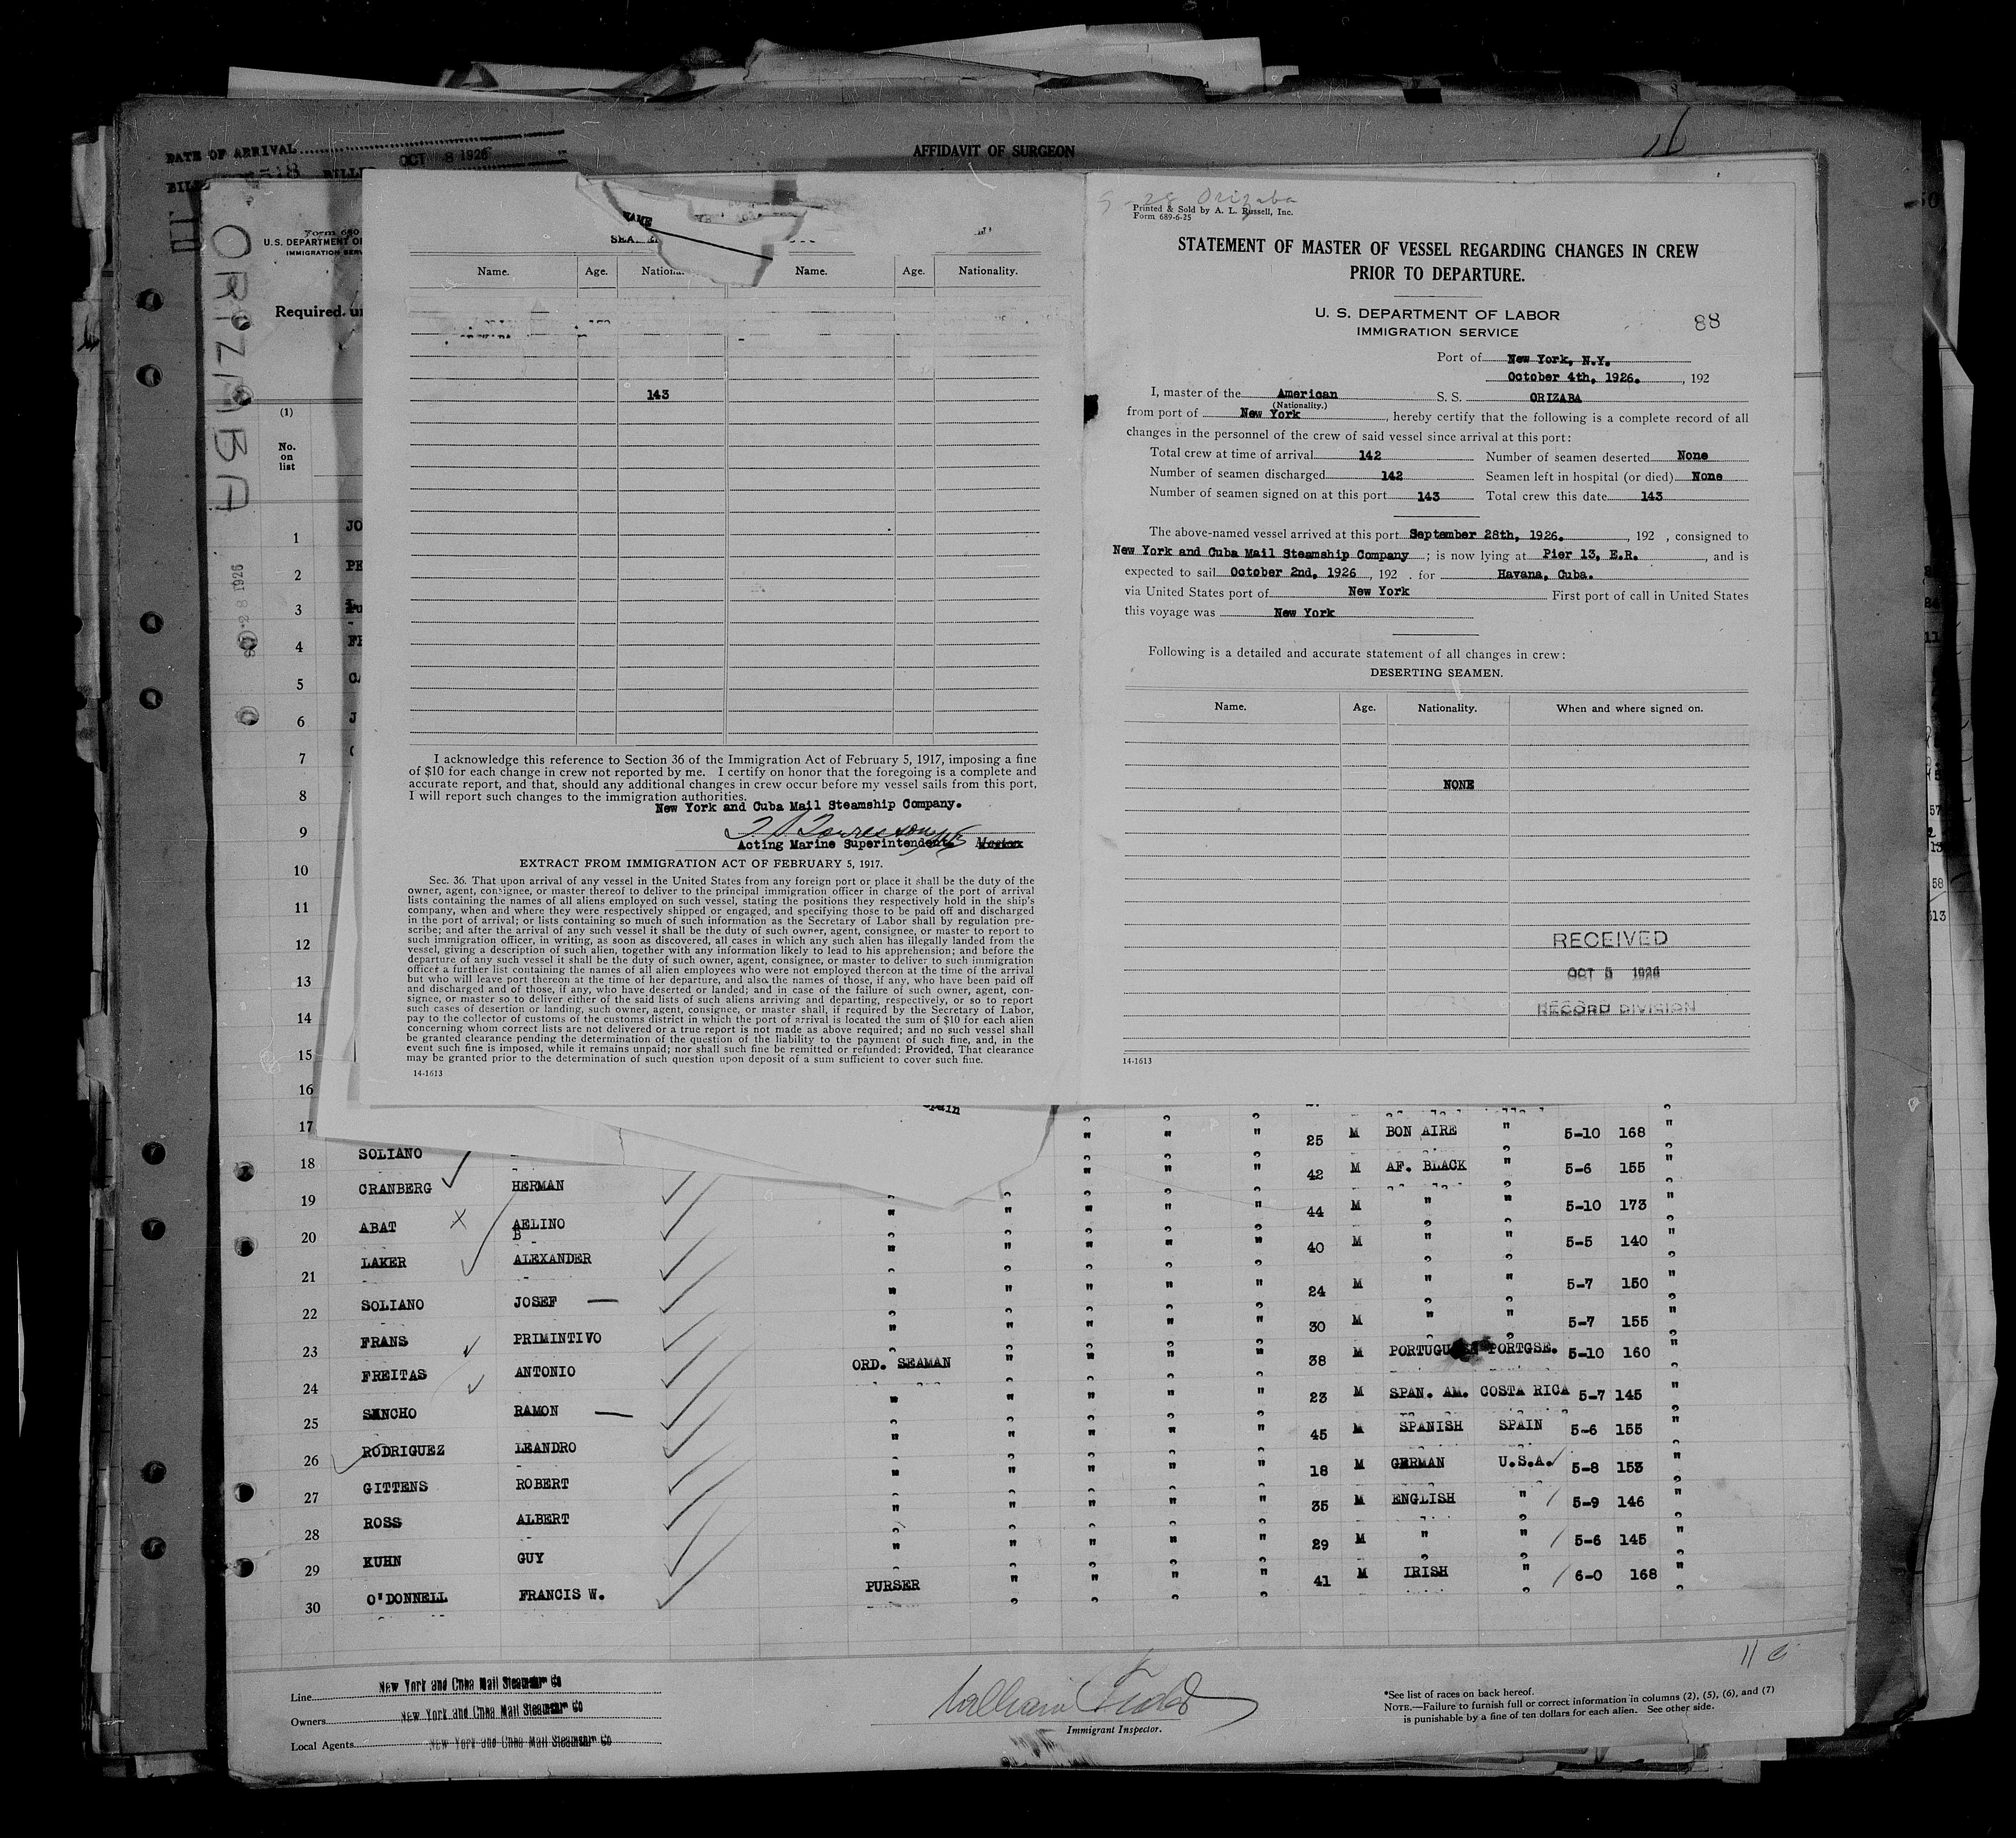 DATE OF ARRIVAL
OCT 8 1926
AFFIDAVIT OF SURGEON
ORIZABA
Form 680
U. S. DEPARTMENT OF
IMMIGRATION SERV
Required un
(1)
No. on list
NAME
Name. Age. Name. Age. Nationality.
143
I acknowledge this reference to Section 36 of the Immigration Act of February 5, 1917, imposing a fine
of $10 for each change in crew not reported by me. I certify on honor that the foregoing is a complete and
accurate report, and that, should any additional changes in crew occur before my vessel sails from this port,
I will report such changes to the immigration authorities.
New York and Cuba Mail Steamship Company.
Acting Marine Superintendent.
EXTRACT FROM IMMIGRATION ACT OF FEBRUARY 5, 1917.
Sec. 36. That upon arrival of any vessel in the United States from any foreign port or place it shall be the duty of the
owner, agent, consignee, or master thereof to deliver to the principal immigration officer in charge of the port of arrival
lists containing the names of all aliens employed on such vessel, stating the positions they respectively hold in the ship's
company, when and where they were respectively shipped or engaged, and specifying those to be paid off and discharged
in the port of arrival; or lists containing so much of such information as the Secretary of Labor shall by regulation pre-
scribe; and after the arrival of any such vessel it shall be the duty of such owner, agent, consignee, or master to report to
such immigration officer, in writing, as soon as discovered, all cases in which any such alien has illegally landed from the
vessel, giving a description of such alien, together with any information likely to lead to his apprehension; and before the
departure of any such vessel it shall be the duty of such owner, agent, consignee, or master to deliver to such immigration
officer a further list containing the names of all alien employees who were not employed thereon at the time of the arrival
but who will leave port thereon at the time of her departure, and also the names of those, if any, who have been paid off
and discharged and of those, if any, who have deserted or landed; and in case of the failure of such owner, agent, con-
signee, or master so to deliver either of the said lists of such aliens arriving and departing, respectively, or so to report
such cases of desertion or landing, such owner, agent, consignee, or master shall, if required by the Secretary of Labor,
pay to the collector of customs of the customs district in which the port of arrival is located the sum of $10 for each alien
concerning whom correct lists are not delivered or a true report is not made as above required; and no such vessel shall
be granted clearance pending the determination of the question of the liability to the payment of such fine, and, in the
event such fine is imposed, while it remains unpaid; nor shall such fine be remitted or refunded: Provided, That clearance
may be granted prior to the determination of such question upon deposit of a sum sufficient to cover such fine.
14-1613
Orizaba
Printed & Sold by A. L. Russell, Inc.
Form 689-6-25
STATEMENT OF MASTER OF VESSEL REGARDING CHANGES IN CREW
PRIOR TO DEPARTURE.
U. S. DEPARTMENT OF LABOR
IMMIGRATION SERVICE
88
Port of New York, N.Y.
October 4th, 1926. , 192
I, master of the American S. S. ORIZABA
(Nationality.)
from port of New York , hereby certify that the following is a complete record of all
changes in the personnel of the crew of said vessel since arrival at this port:
Total crew at time of arrival 142 Number of seamen deserted None
Number of seamen discharged 142 Seamen left in hospital (or died) None
Number of seamen signed on at this port 143 Total crew this date 143
The above-named vessel arrived at this port September 28th, 1926. , 192 , consigned to
New York and Cuba Mail Steamship Company ; is now lying at Pier 13, E.R. , and is
expected to sail October 2nd, 1926 , 192 . for Havana, Cuba.
via United States port of New York First port of call in United States
this voyage was New York
Following is a detailed and accurate statement of all changes in crew:
DESERTING SEAMEN.
Name. Age. Nationality. When and where signed on.
NONE
RECEIVED
OCT 5 1926
RECORD DIVISION
14-1613
1
2
3
4
5
6
7
8
9
10
11
12
13
14
15
16
17 " " " 25 M BON AIRE " 5-10 168 "
18 SOLIANO " " " 42 M AF. BLACK " 5-6 155 "
19 CRANBERG HERMAN " " " " 44 M " " 5-10 173 "
20 ABAT AELINO B " " " " 40 M " " 5-5 140 "
21 LAKER ALEXANDER " " " " 24 M " " 5-7 150 "
22 SOLIANO JOSEF " " " " 30 M " " 5-7 155 "
23 FRANS PRIMINTIVO ORD. SEAMAN " " " 38 M PORTUGUESE PORTGSE. 5-10 160 "
24 FREITAS ANTONIO " " " " 23 M SPAN. AM. COSTA RICA 5-7 145 "
25 SANCHO RAMON " " " " 45 M SPANISH SPAIN 5-6 155 "
26 RODRIGUEZ LEANDRO " " " " 18 M GERMAN U.S.A. 5-8 153 "
27 GITTENS ROBERT " " " " 35 M ENGLISH " 5-9 146 "
28 ROSS ALBERT " " " " 29 M " " 5-6 145 "
29 KUHN GUY PURSER " " " 41 M IRISH " 6-0 168 "
30 O'DONNELL FRANCIS W.
Line New York and Cuba Mail Steamship Co
Owners New York and Cuba Mail Steamship Co
Local Agents New York and Cuba Mail Steamship Co
William Todd
Immigrant Inspector.
*See list of races on back hereof.
NOTE.—Failure to furnish full or correct information in columns (2), (5), (6), and (7)
is punishable by a fine of ten dollars for each alien. See other side.